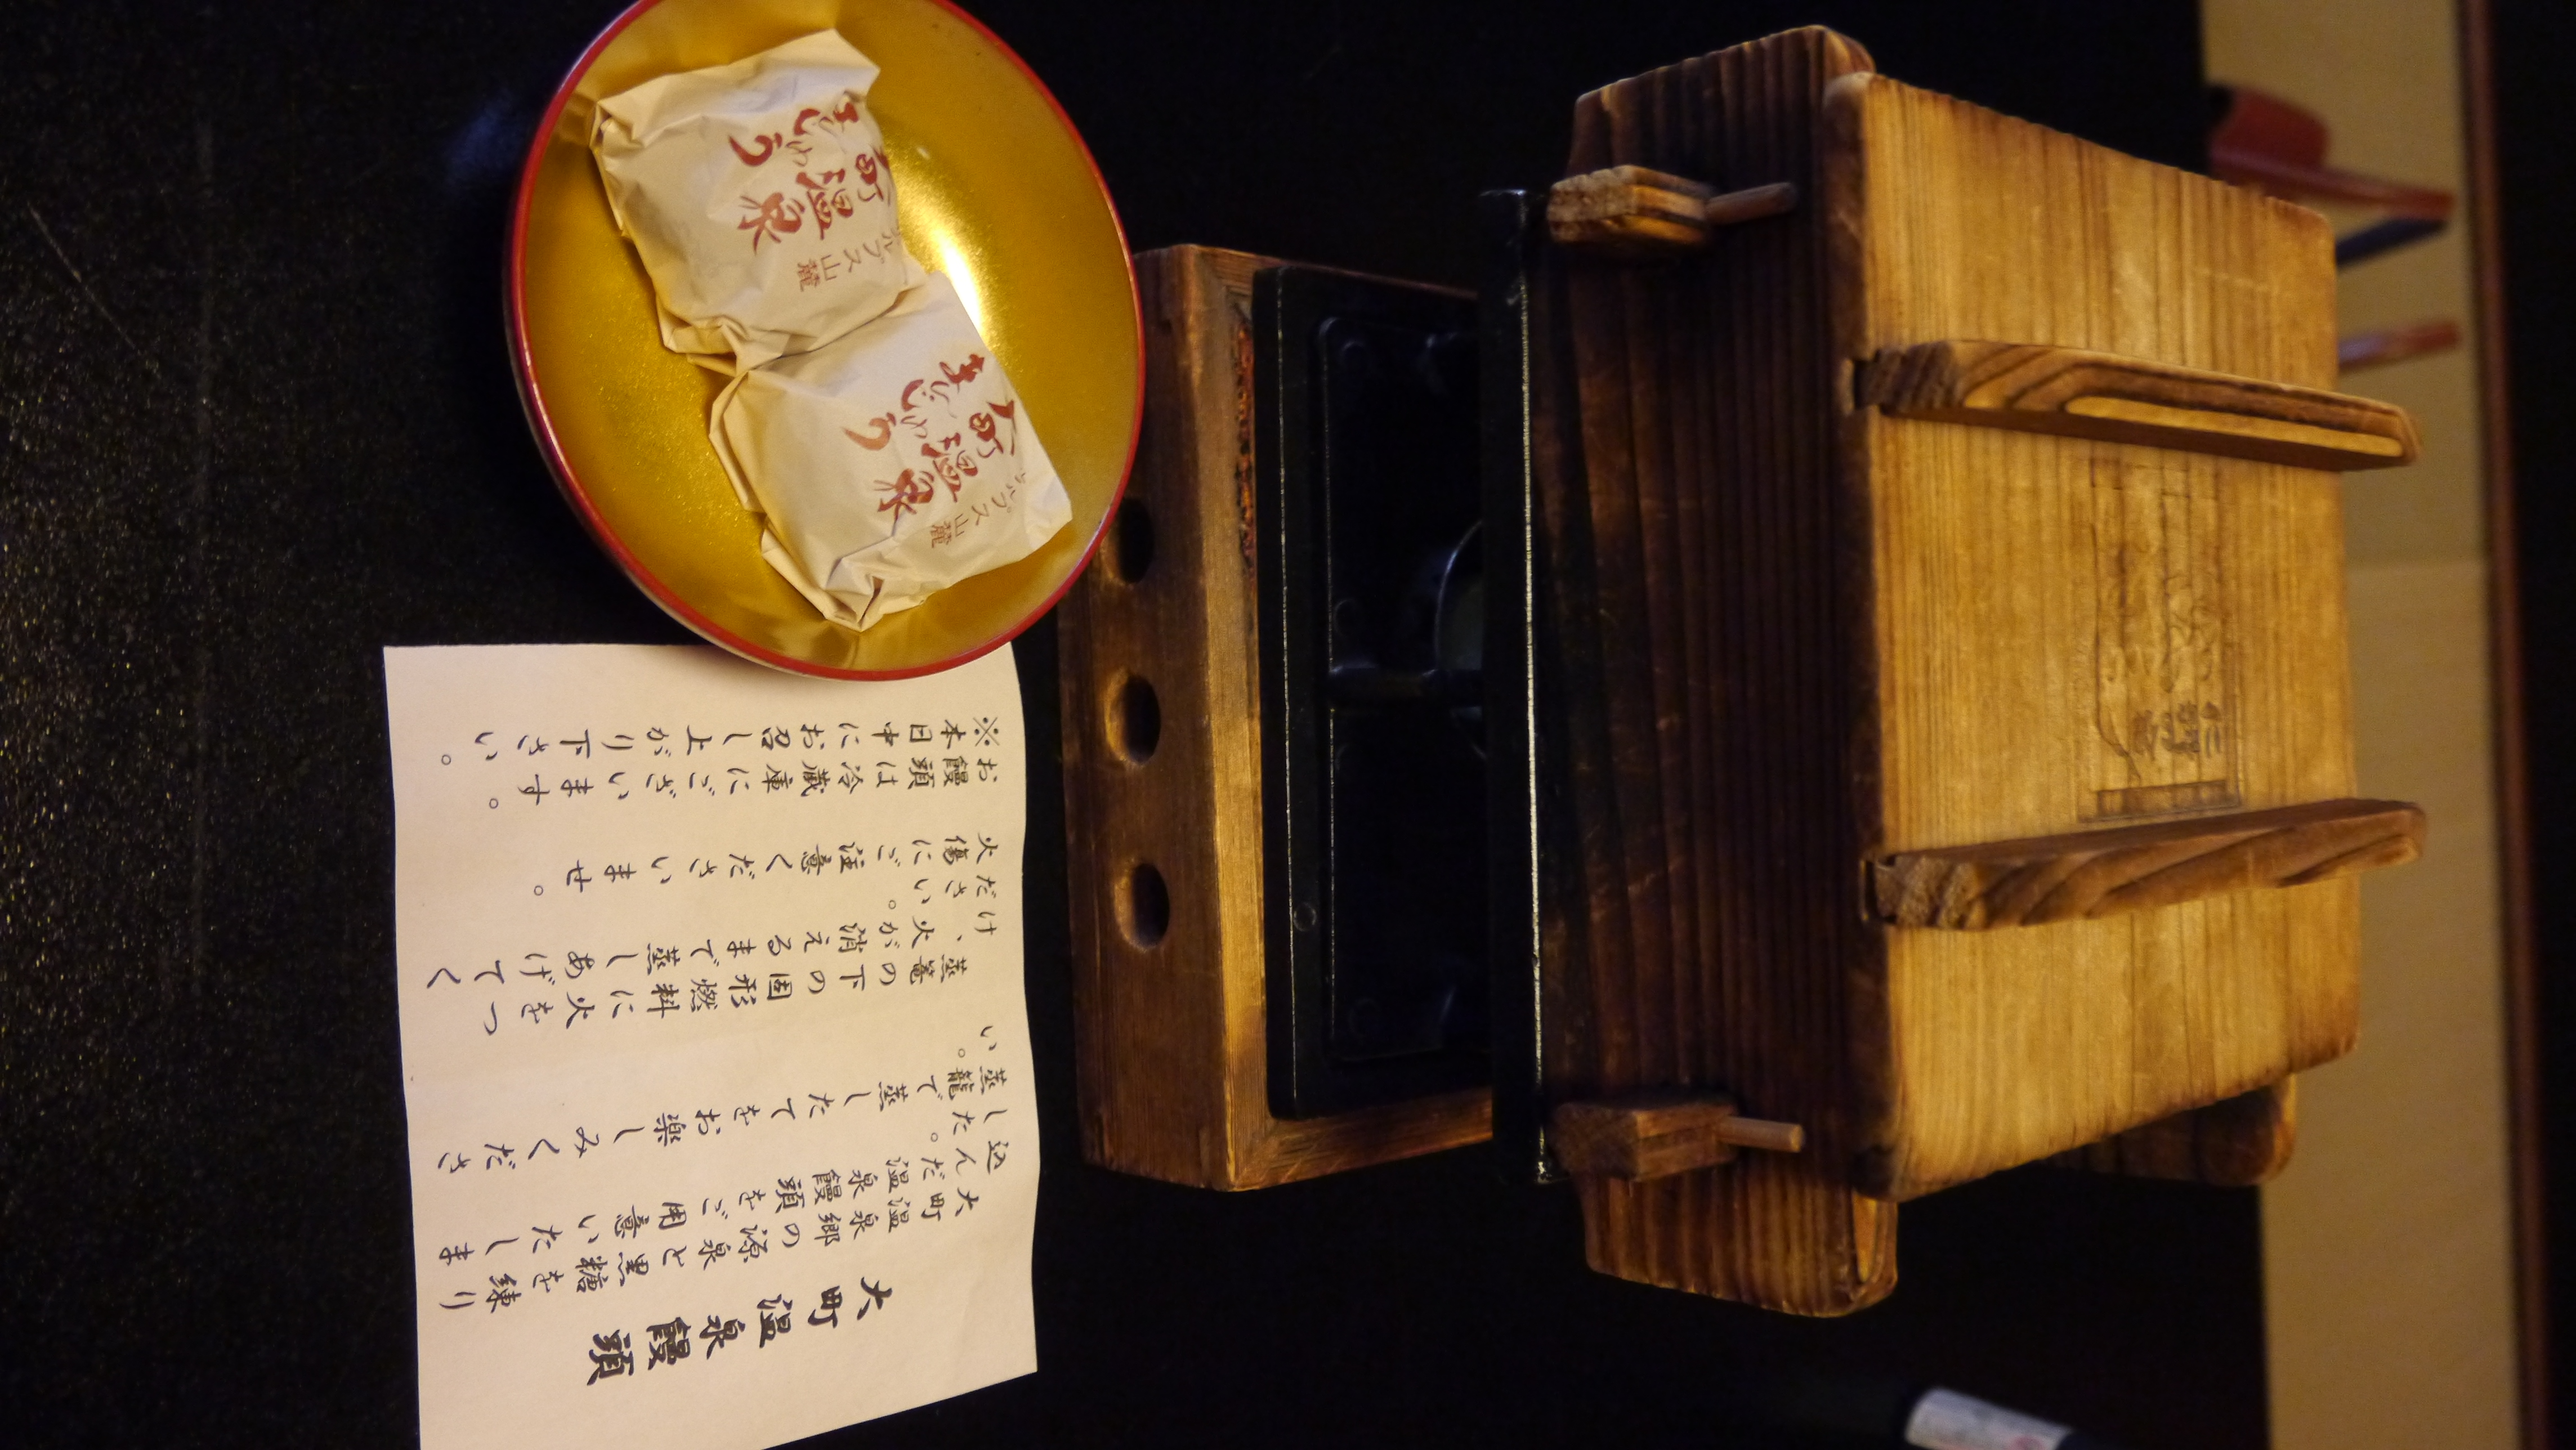 大町温泉饅頭
大町温泉郷の源泉と黒糖を練り
込んだ温泉饅頭をご用意いたしま
した。
蒸籠で蒸したてをお楽しみくださ
い。
蒸篭の下の固形燃料に火をつ
け、火が消えるまで蒸しあげてく
ださい。
火傷にご注意くださいませ。
お饅頭は冷蔵庫にございます。
※本日中にお召し上がり下さい。
ルプス山麓
町温泉
まんじゅう
ルプス山麓
大町温泉
まんじゅう